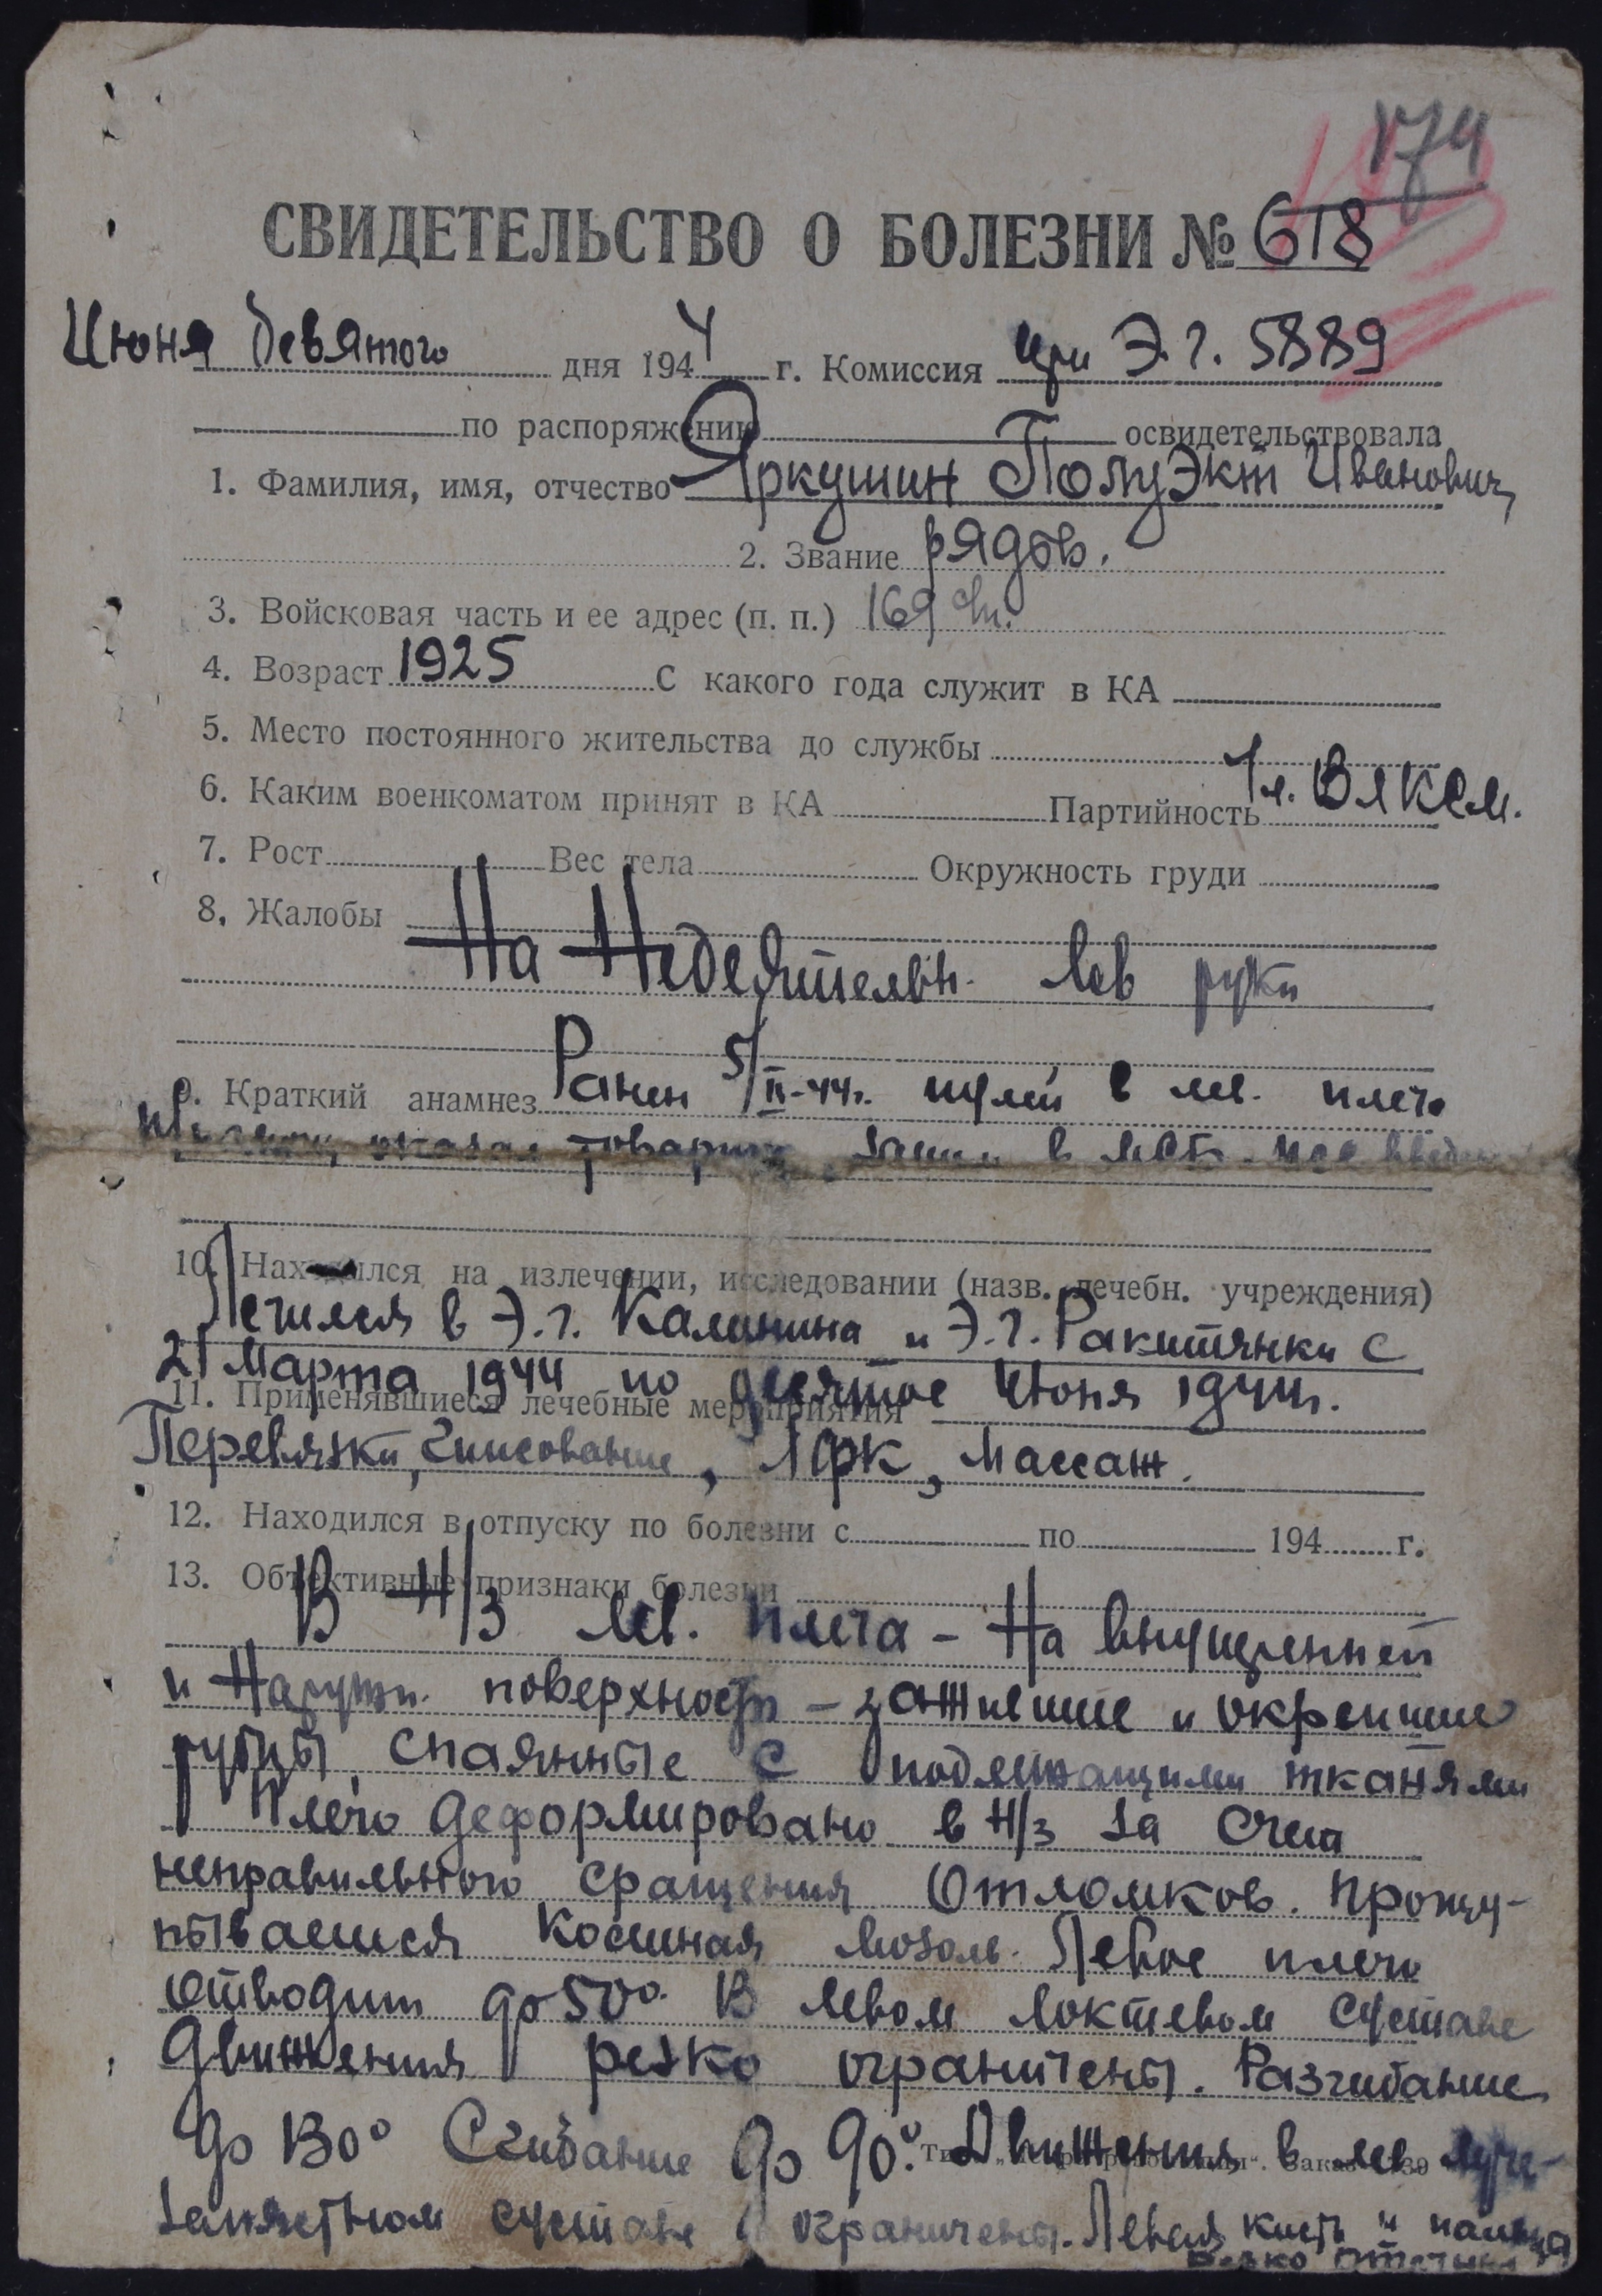 174
СВИДЕТЕЛЬСТВО О БОЛЕЗНИ № 618
Июня девятого дня 1944 г. Комиссия при Э.Г. 5889
по распоряжению освидетельствовала
1. Фамилия, имя, отчество Яркушин Полуэкт Иванович
2. Звание рядов.
3. Войсковая часть и ее адрес (п. п.) 169
4. Возраст 1925 С какого года служит в КА
5. Место постоянного жительства до службы
6. Каким военкоматом принят в КА Партийность Чл. ВЛКСМ.
7. Рост Вес тела Окружность груди
8. Жалобы
На недеятельн. лев руки
9. Краткий анамнез Ранен 5/II-44г. пулей в лев. плечо
оказал товарищ в
10. Находился на излечении, исследовании (назв. лечебн. учреждения)
Лечился в Э.Г. Калинина и Э.Г. Ракитянки с
21 Марта 1944 по десятое Июня 1944г.
11. Применявшиеся лечебные мероприятия
Перевязки, гипсование, ЛФК, массаж.
12. Находился в отпуску по болезни с по 194 г.
13. Объективные признаки болезни
В Н/з лев. плеча - на внутренней
и наружн. поверхности - зажившие и окрепшие
рубцы, спаянные с подлежащими тканями
Плечо деформировано в н/з за счет
неправильного сращения отломков. Прощу-
пывается костная мозоль. Левое плечо
отводит до 50°. В левом локтевом суставе
движения резко ограничены. Разгибание
до 130° Сгибание до 90°. Движения в лев. луче-
запястном суставе ограничены. Левая кисть и пальца
отечны